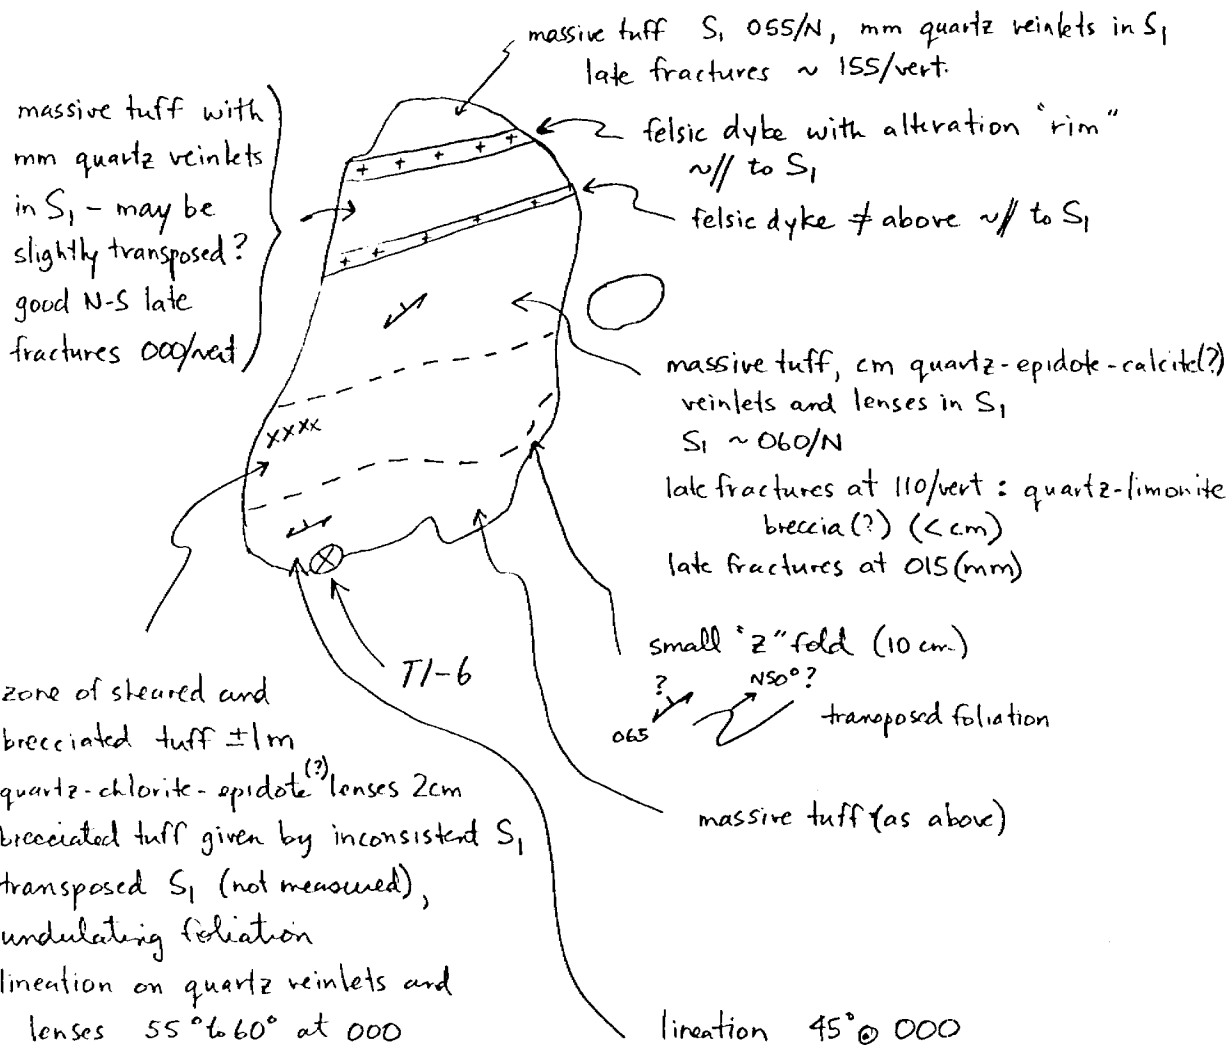 massive tuff S1 055/N, mm quartz veinlets in S1
late fractures ~ 155/vert.
massive tuff with
mm quartz veinlets
in S1 - may be
slightly transposed?
good N-S late
fractures 000/vert
felsic dyke with alteration "rim"
~// to S1
felsic dyke ≠ above ~// to S1
massive tuff, cm quartz-epidote-calcite(?)
veinlets and lenses in S1
S1 ~ 060/N
late fractures at 110/vert : quartz-limonite
breccia(?) (< cm)
late fractures at 015 (mm)
xxxx
small "z" fold (10 cm.)
? N50°?
065 transposed foliation
T1-6
massive tuff (as above)
zone of sheared and
brecciated tuff ±1m
quartz-chlorite-epidote(?) lenses 2cm
brecciated tuff given by inconsistent S1
transposed S1 (not measured),
undulating foliation
lineation on quartz veinlets and
lenses 55° to 60° at 000
lineation 45° @ 000